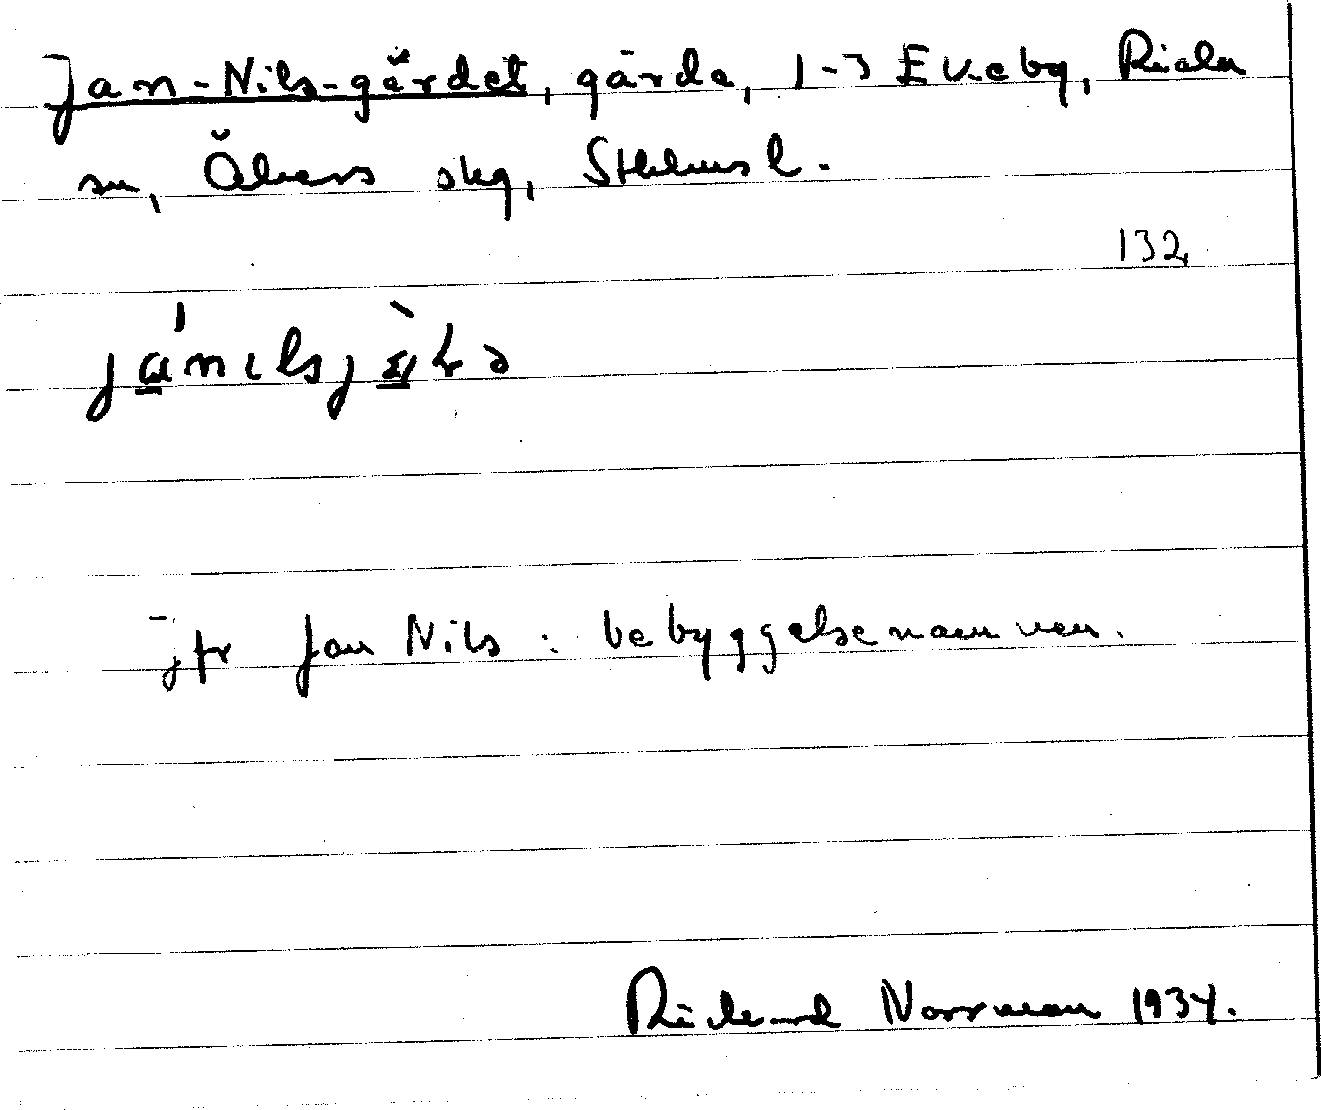 Jan-Nils-gärdet, gärde, 1-3 Ekeby, Riala
sn, Åkers skg, Sthlms l.
132
jfr Jan Nils i bebyggelsenamnen.
Rickard Norrman 1934.